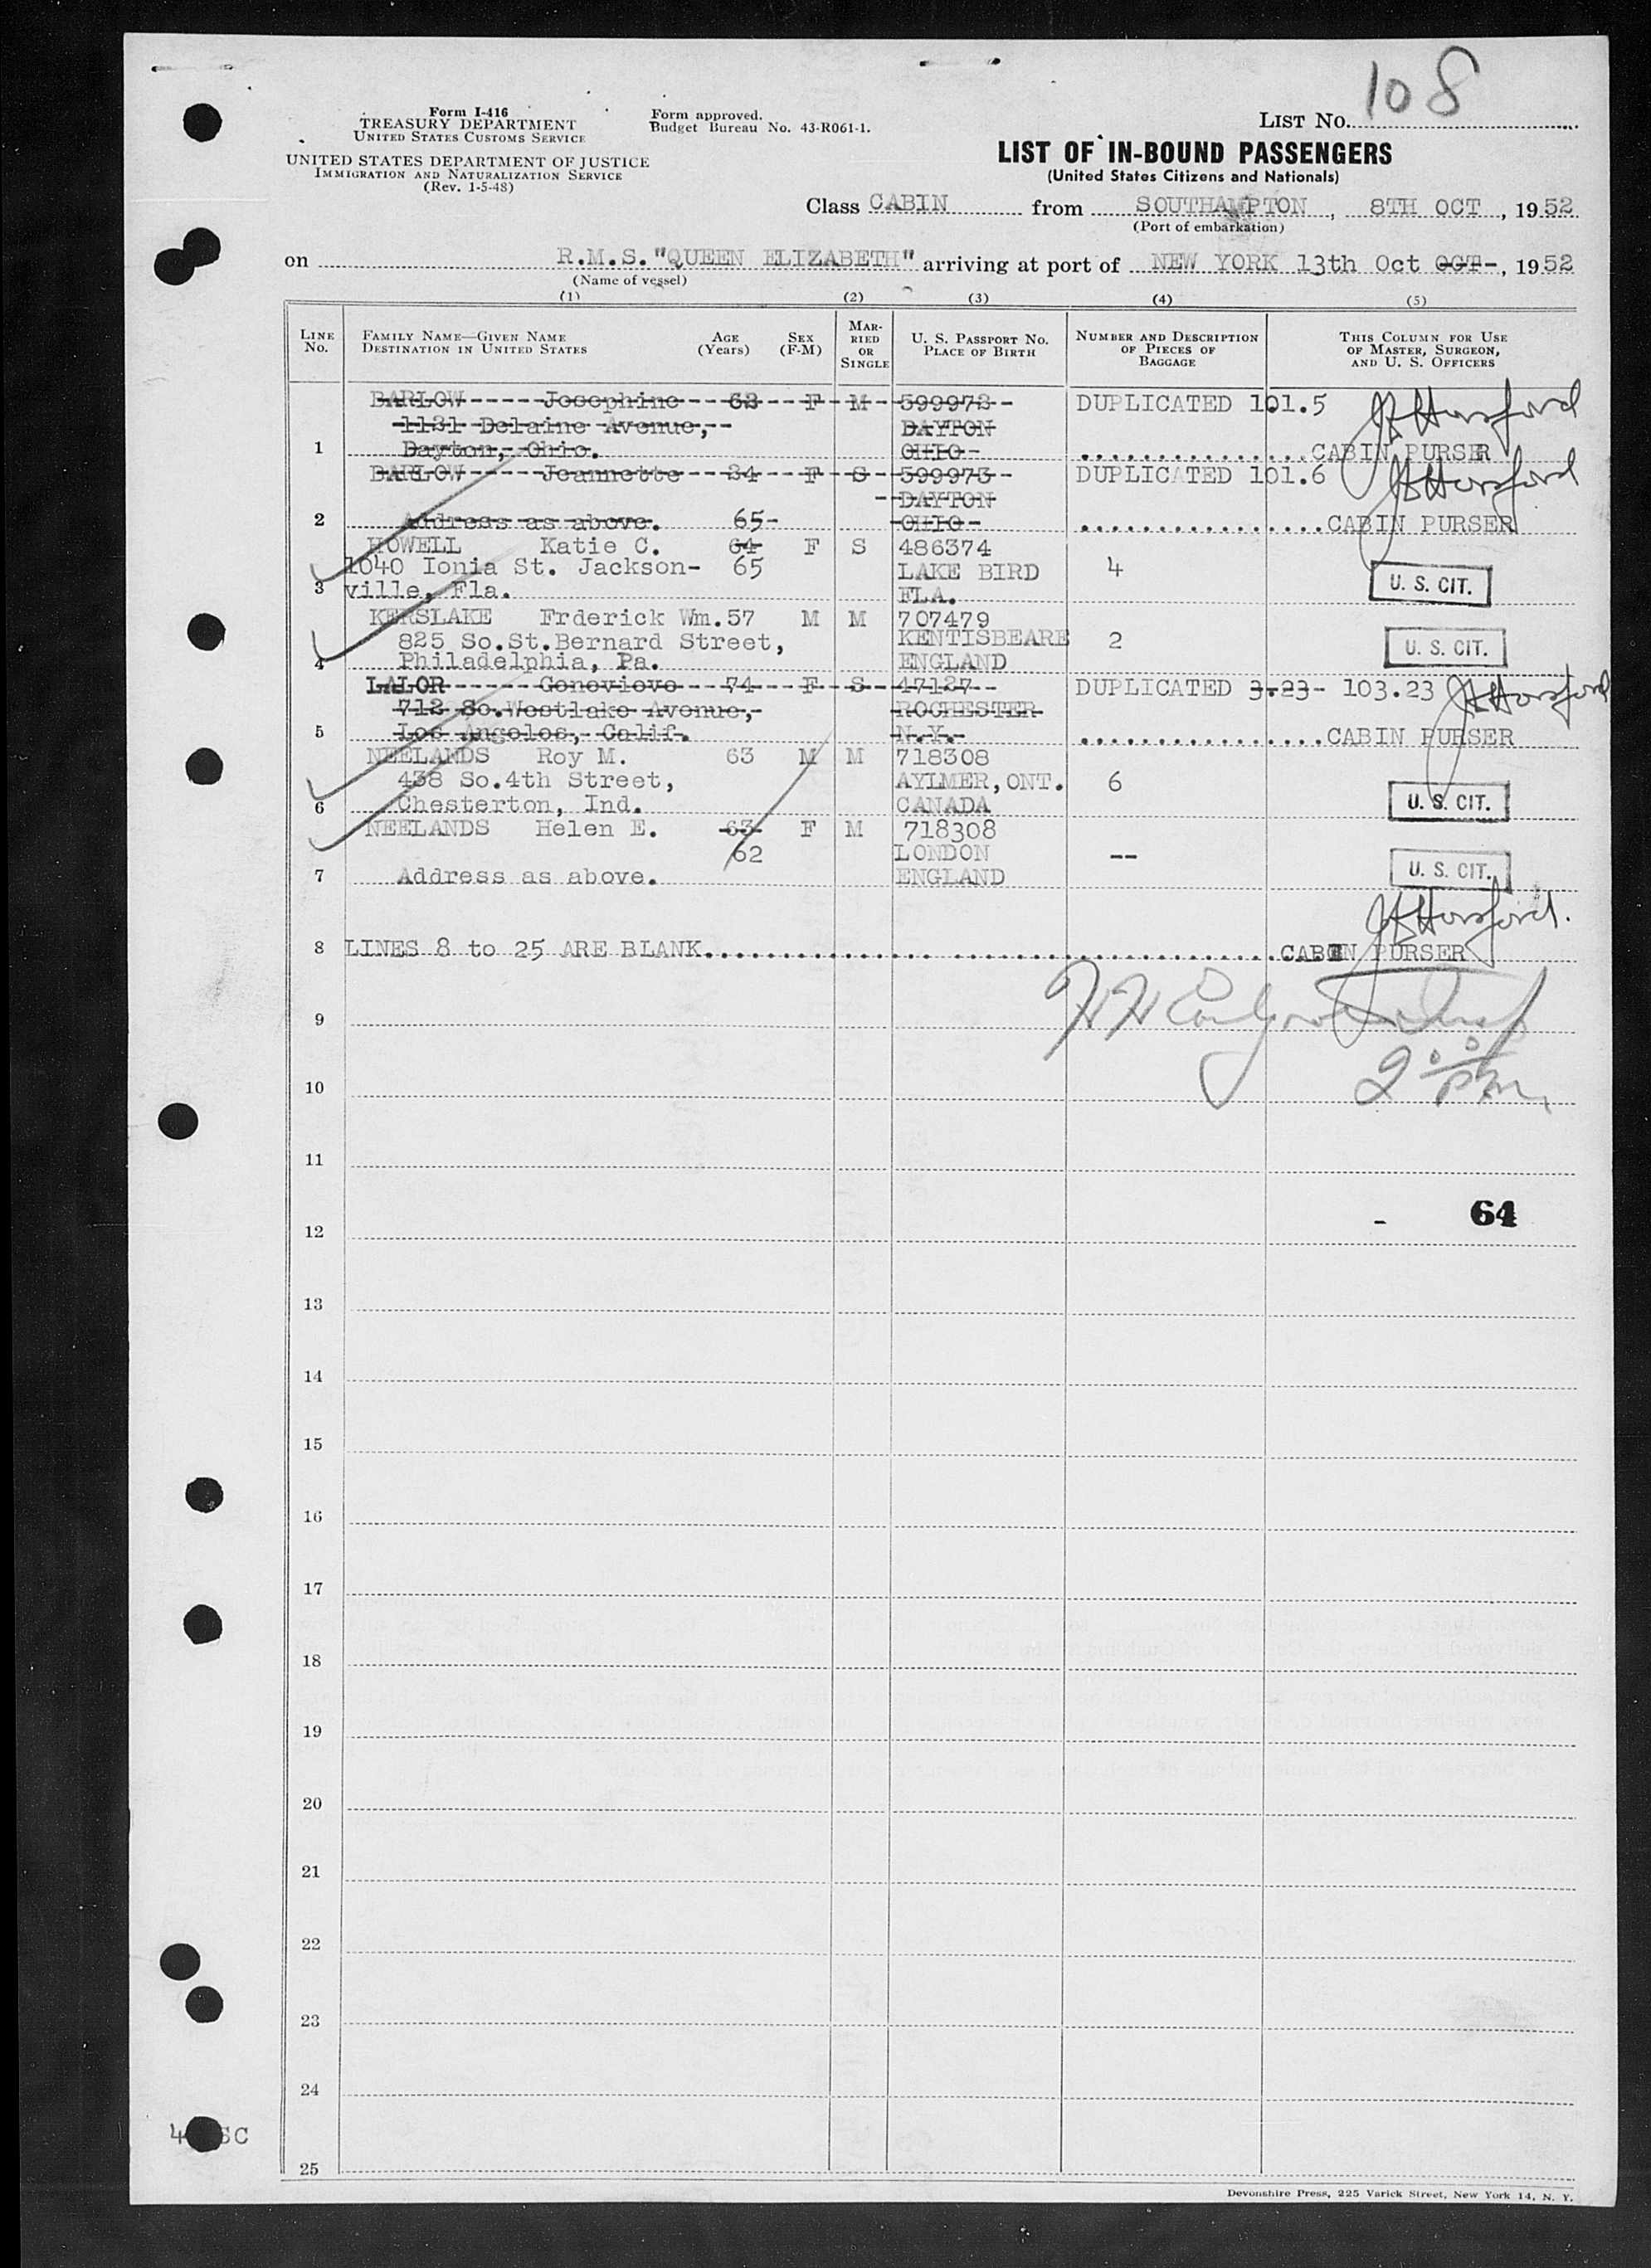 108
Form I-416
TREASURY DEPARTMENT
UNITED STATES CUSTOMS SERVICE
Form approved.
Budget Bureau No. 43-R061-1.
LIST No.
UNITED STATES DEPARTMENT OF JUSTICE
IMMIGRATION AND NATURALIZATION SERVICE
(Rev. 1-5-48)
LIST OF IN-BOUND PASSENGERS
(United States Citizens and Nationals)
Class CABIN from SOUTHAMPTON, 8TH OCT, 1952
(Port of embarkation)
on R.M.S. "QUEEN ELIZABETH" arriving at port of NEW YORK 13th Oct OCT-, 1952
(Name of vessel)
(1) (2) (3) (4) (5)
LINE No. FAMILY NAME—GIVEN NAME DESTINATION IN UNITED STATES AGE (Years) SEX (F-M) MARRIED OR SINGLE U. S. PASSPORT No. PLACE OF BIRTH NUMBER AND DESCRIPTION OF PIECES OF BAGGAGE THIS COLUMN FOR USE OF MASTER, SURGEON, AND U. S. OFFICERS
BARLOW Josephine 62 F M 599972 DUPLICATED 101.5
1131 Delaine Avenue, DAYTON
1 Dayton, Ohio. OHIO CABIN PURSER
BARLOW Jeannette 34 F S 599973 DUPLICATED 101.6
DAYTON
2 Address as above. 65- OHIO CABIN PURSER
HOWELL Katie C. 64 F S 486374
1040 Ionia St. Jackson- 65 LAKE BIRD 4
3 ville, Fla. FLA. U. S. CIT.
KERSLAKE Frderick Wm. 57 M M 707479
825 So.St.Bernard Street, KENTISBEARE 2
4 Philadelphia, Pa. ENGLAND U. S. CIT.
LALOR Genevieve 74 F S 47127 DUPLICATED 3.23- 103.23
712 So.Westlake Avenue, ROCHESTER
5 Los Angeles, Calif. N.Y. CABIN PURSER
NEELANDS Roy M. 63 M M 718308
438 So.4th Street, AYLMER, ONT. 6
6 Chesterton, Ind. CANADA U. S. CIT.
NEELANDS Helen E. 63 F M 718308
62 LONDON --
7 Address as above. ENGLAND U. S. CIT.
8 LINES 8 to 25 ARE BLANK CABIN PURSER
9
2 00 pm
10
11
64
12
13
14
15
16
17
18
19
20
21
22
23
24
25
Devonshire Press, 225 Varick Street, New York 14, N. Y.